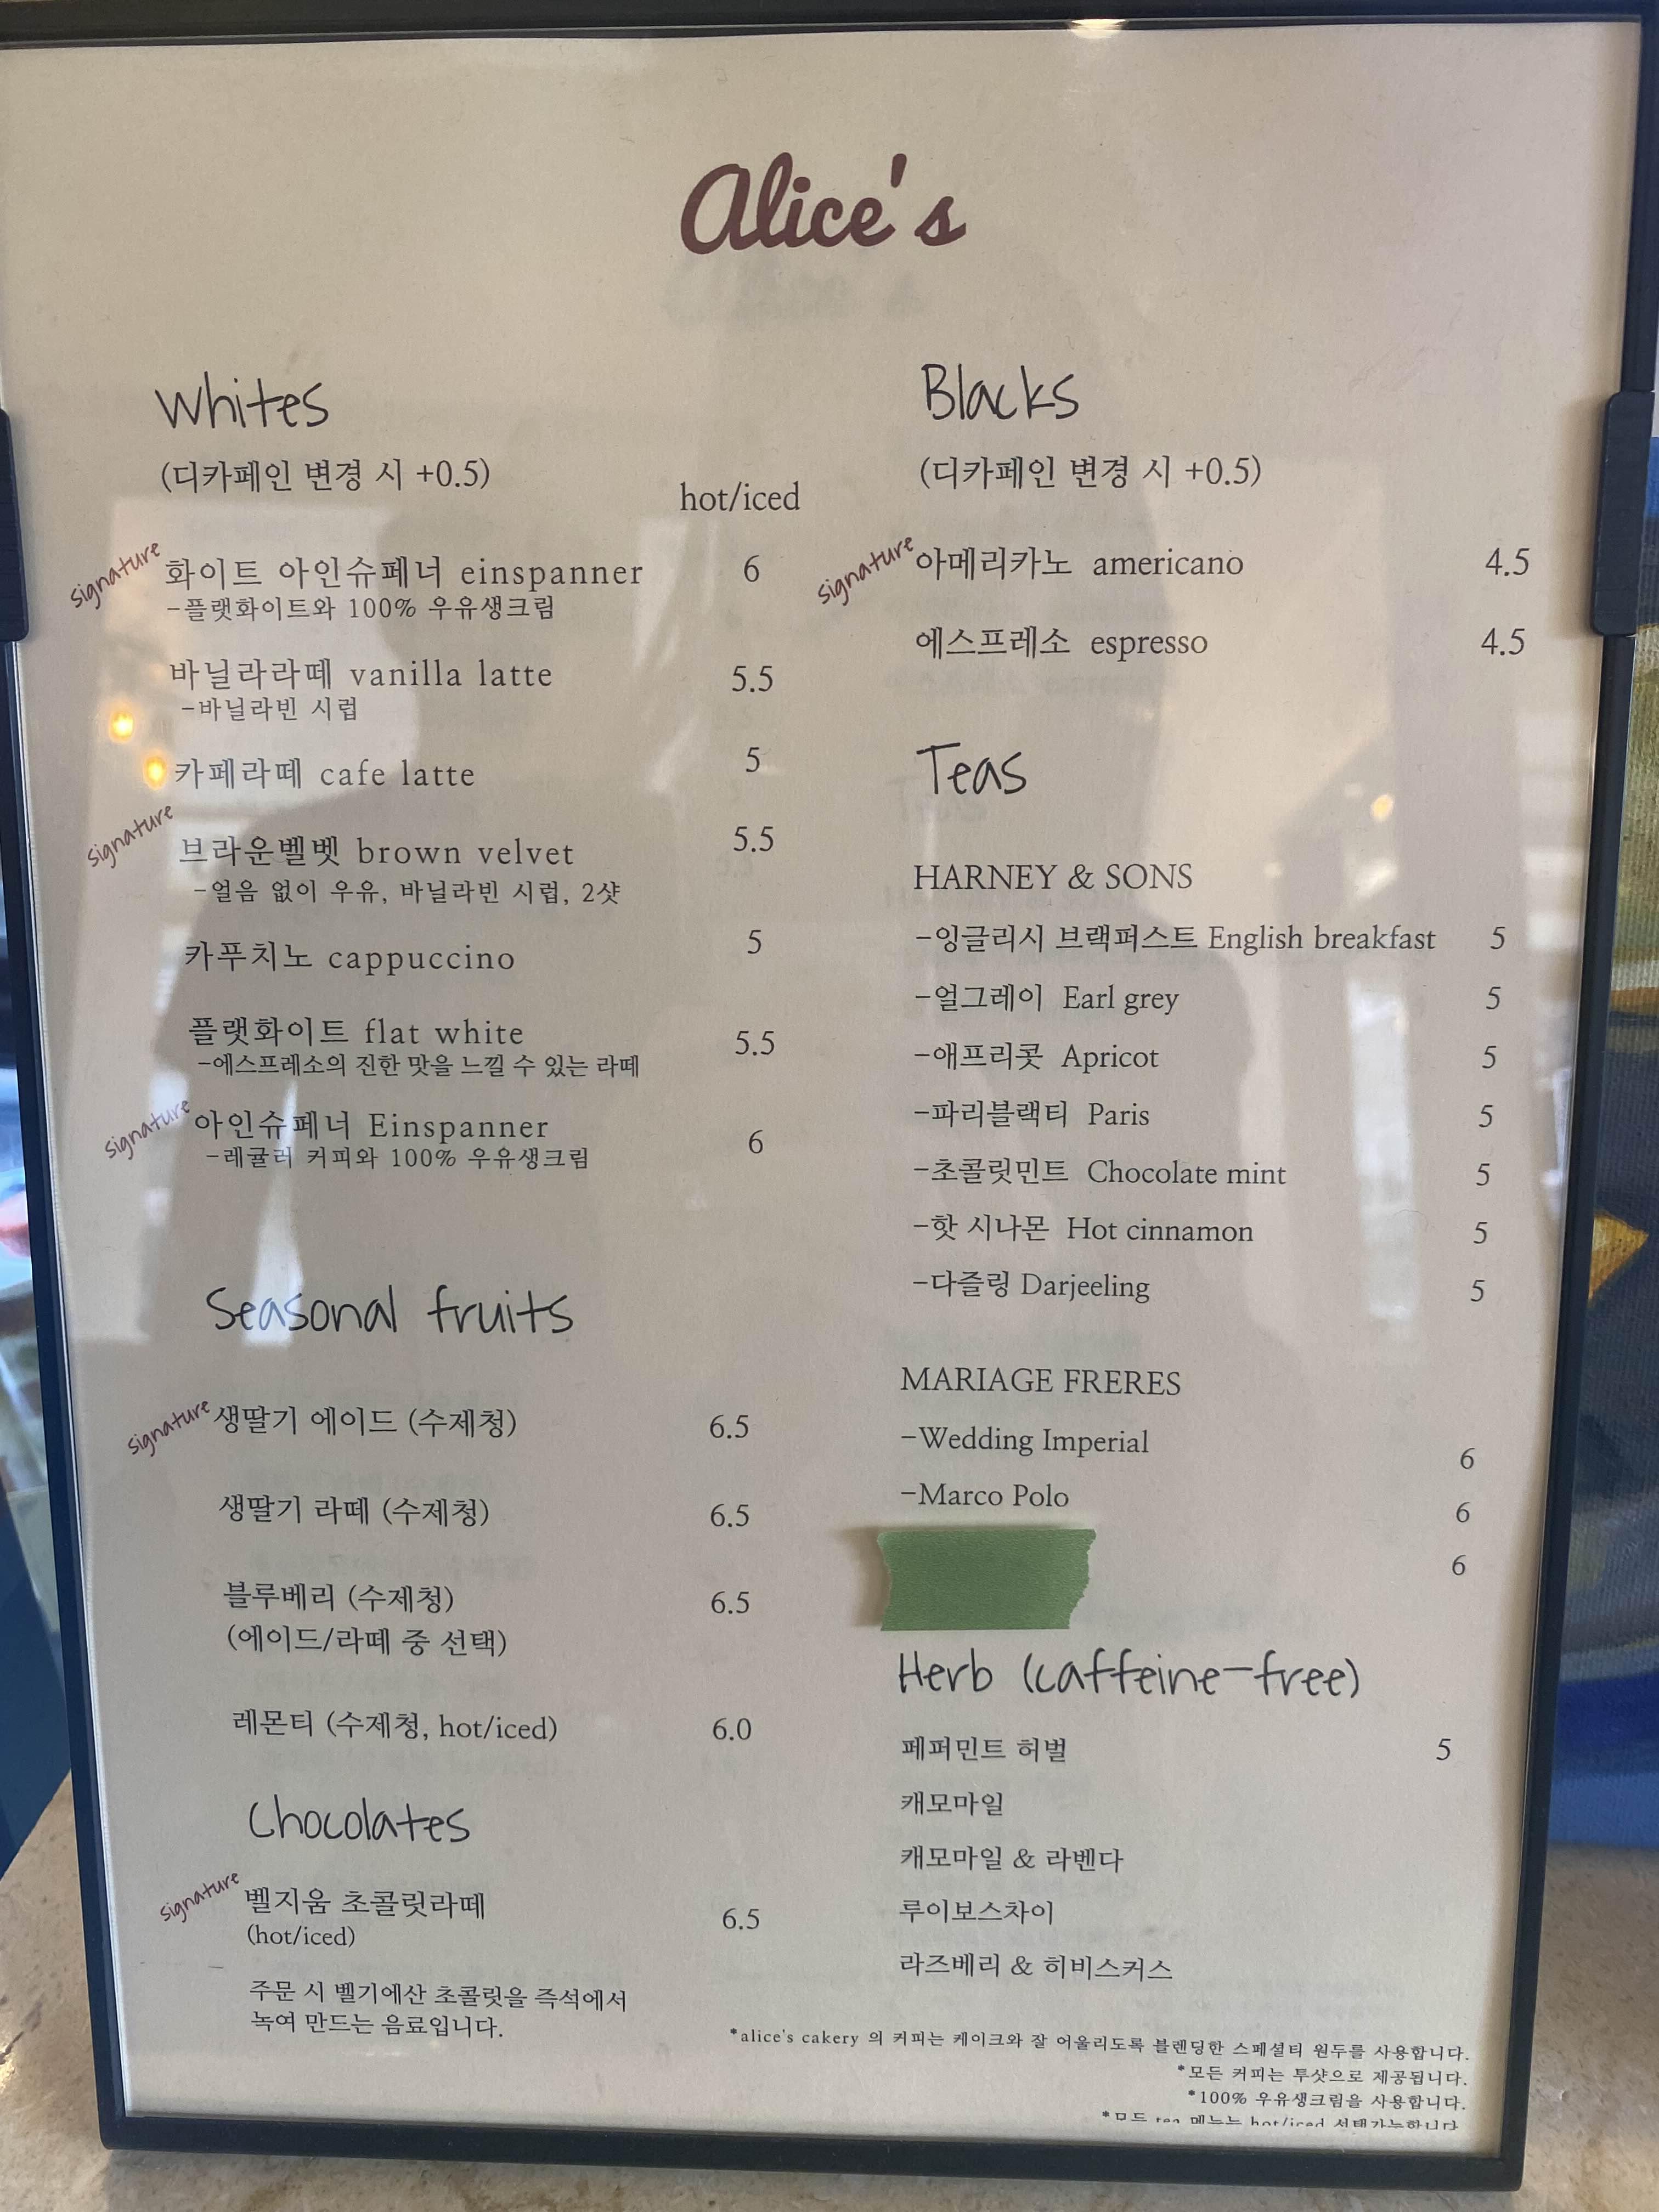 Alice's
Whites
(디카페인 변경 시 +0.5)
hot/iced
signature
화이트 아인슈페너 einspanner 6
-플랫화이트와 100% 우유생크림
바닐라라떼 vanilla latte 5.5
-바닐라빈 시럽
카페라떼 cafe latte 5
signature
브라운벨벳 brown velvet 5.5
-얼음 없이 우유, 바닐라빈 시럽, 2샷
카푸치노 cappuccino 5
플랫화이트 flat white 5.5
-에스프레소의 진한 맛을 느낄 수 있는 라떼
signature
아인슈페너 Einspanner 6
-레귤러 커피와 100% 우유생크림
Seasonal fruits
signature
생딸기 에이드 (수제청) 6.5
생딸기 라떼 (수제청) 6.5
블루베리 (수제청) 6.5
(에이드/라떼 중 선택)
레몬티 (수제청, hot/iced) 6.0
Chocolates
signature
벨지움 초콜릿라떼 6.5
(hot/iced)
주문 시 벨기에산 초콜릿을 즉석에서
녹여 만드는 음료입니다.
Blacks
(디카페인 변경 시 +0.5)
signature
아메리카노 americano 4.5
에스프레소 espresso 4.5
Teas
HARNEY & SONS
-잉글리시 브랙퍼스트 English breakfast 5
-얼그레이 Earl grey 5
-애프리콧 Apricot 5
-파리블랙티 Paris 5
-초콜릿민트 Chocolate mint 5
-핫 시나몬 Hot cinnamon 5
-다즐링 Darjeeling 5
MARIAGE FRERES
-Wedding Imperial 6
-Marco Polo 6
6
Herb (caffeine-free)
페퍼민트 허벌 5
캐모마일
캐모마일 & 라벤다
루이보스차이
라즈베리 & 히비스커스
*alice's cakery 의 커피는 케이크와 잘 어울리도록 블렌딩한 스페셜티 원두를 사용합니다.
*모든 커피는 투샷으로 제공됩니다.
*100% 우유생크림을 사용합니다.
*모든 tea 메뉴는 hot/iced 선택가능합니다